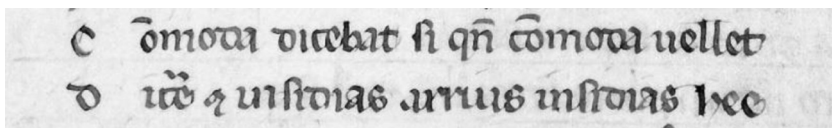 C ōmoda dicebat si qn̄ cōmoda uellet
D ic̄e ⁊ insidias .arrius insidias hee